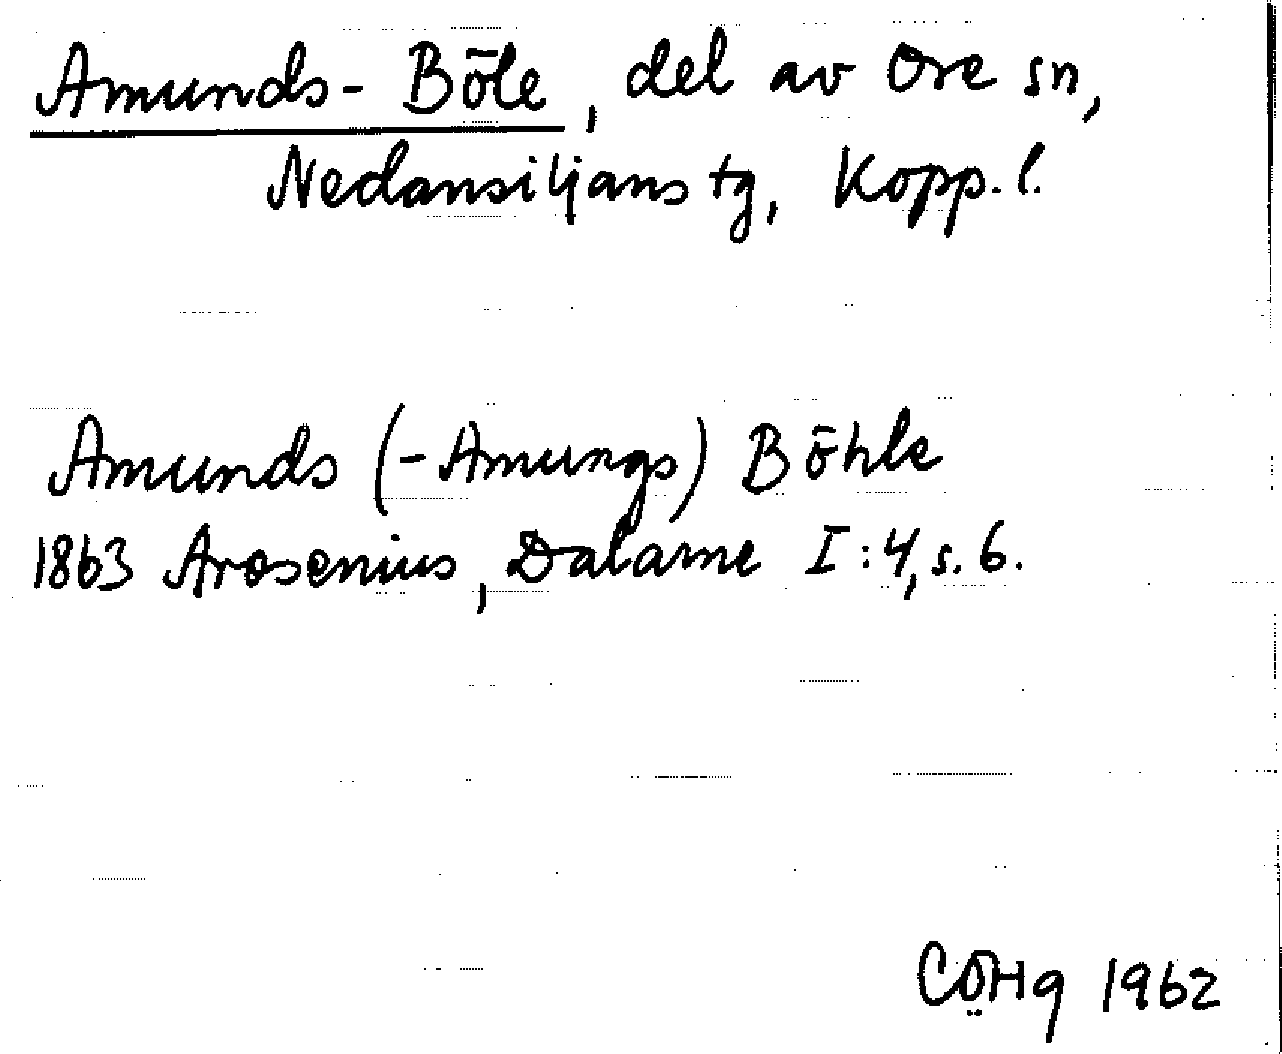 Amunds-Böle, del av Ore sn,
Nedansiljans tg, Kopp. l.
Amunds (-Amungs) Böhle
1863 Arosenius, Dalarne I:4, s. 6.
CÖHg 1962